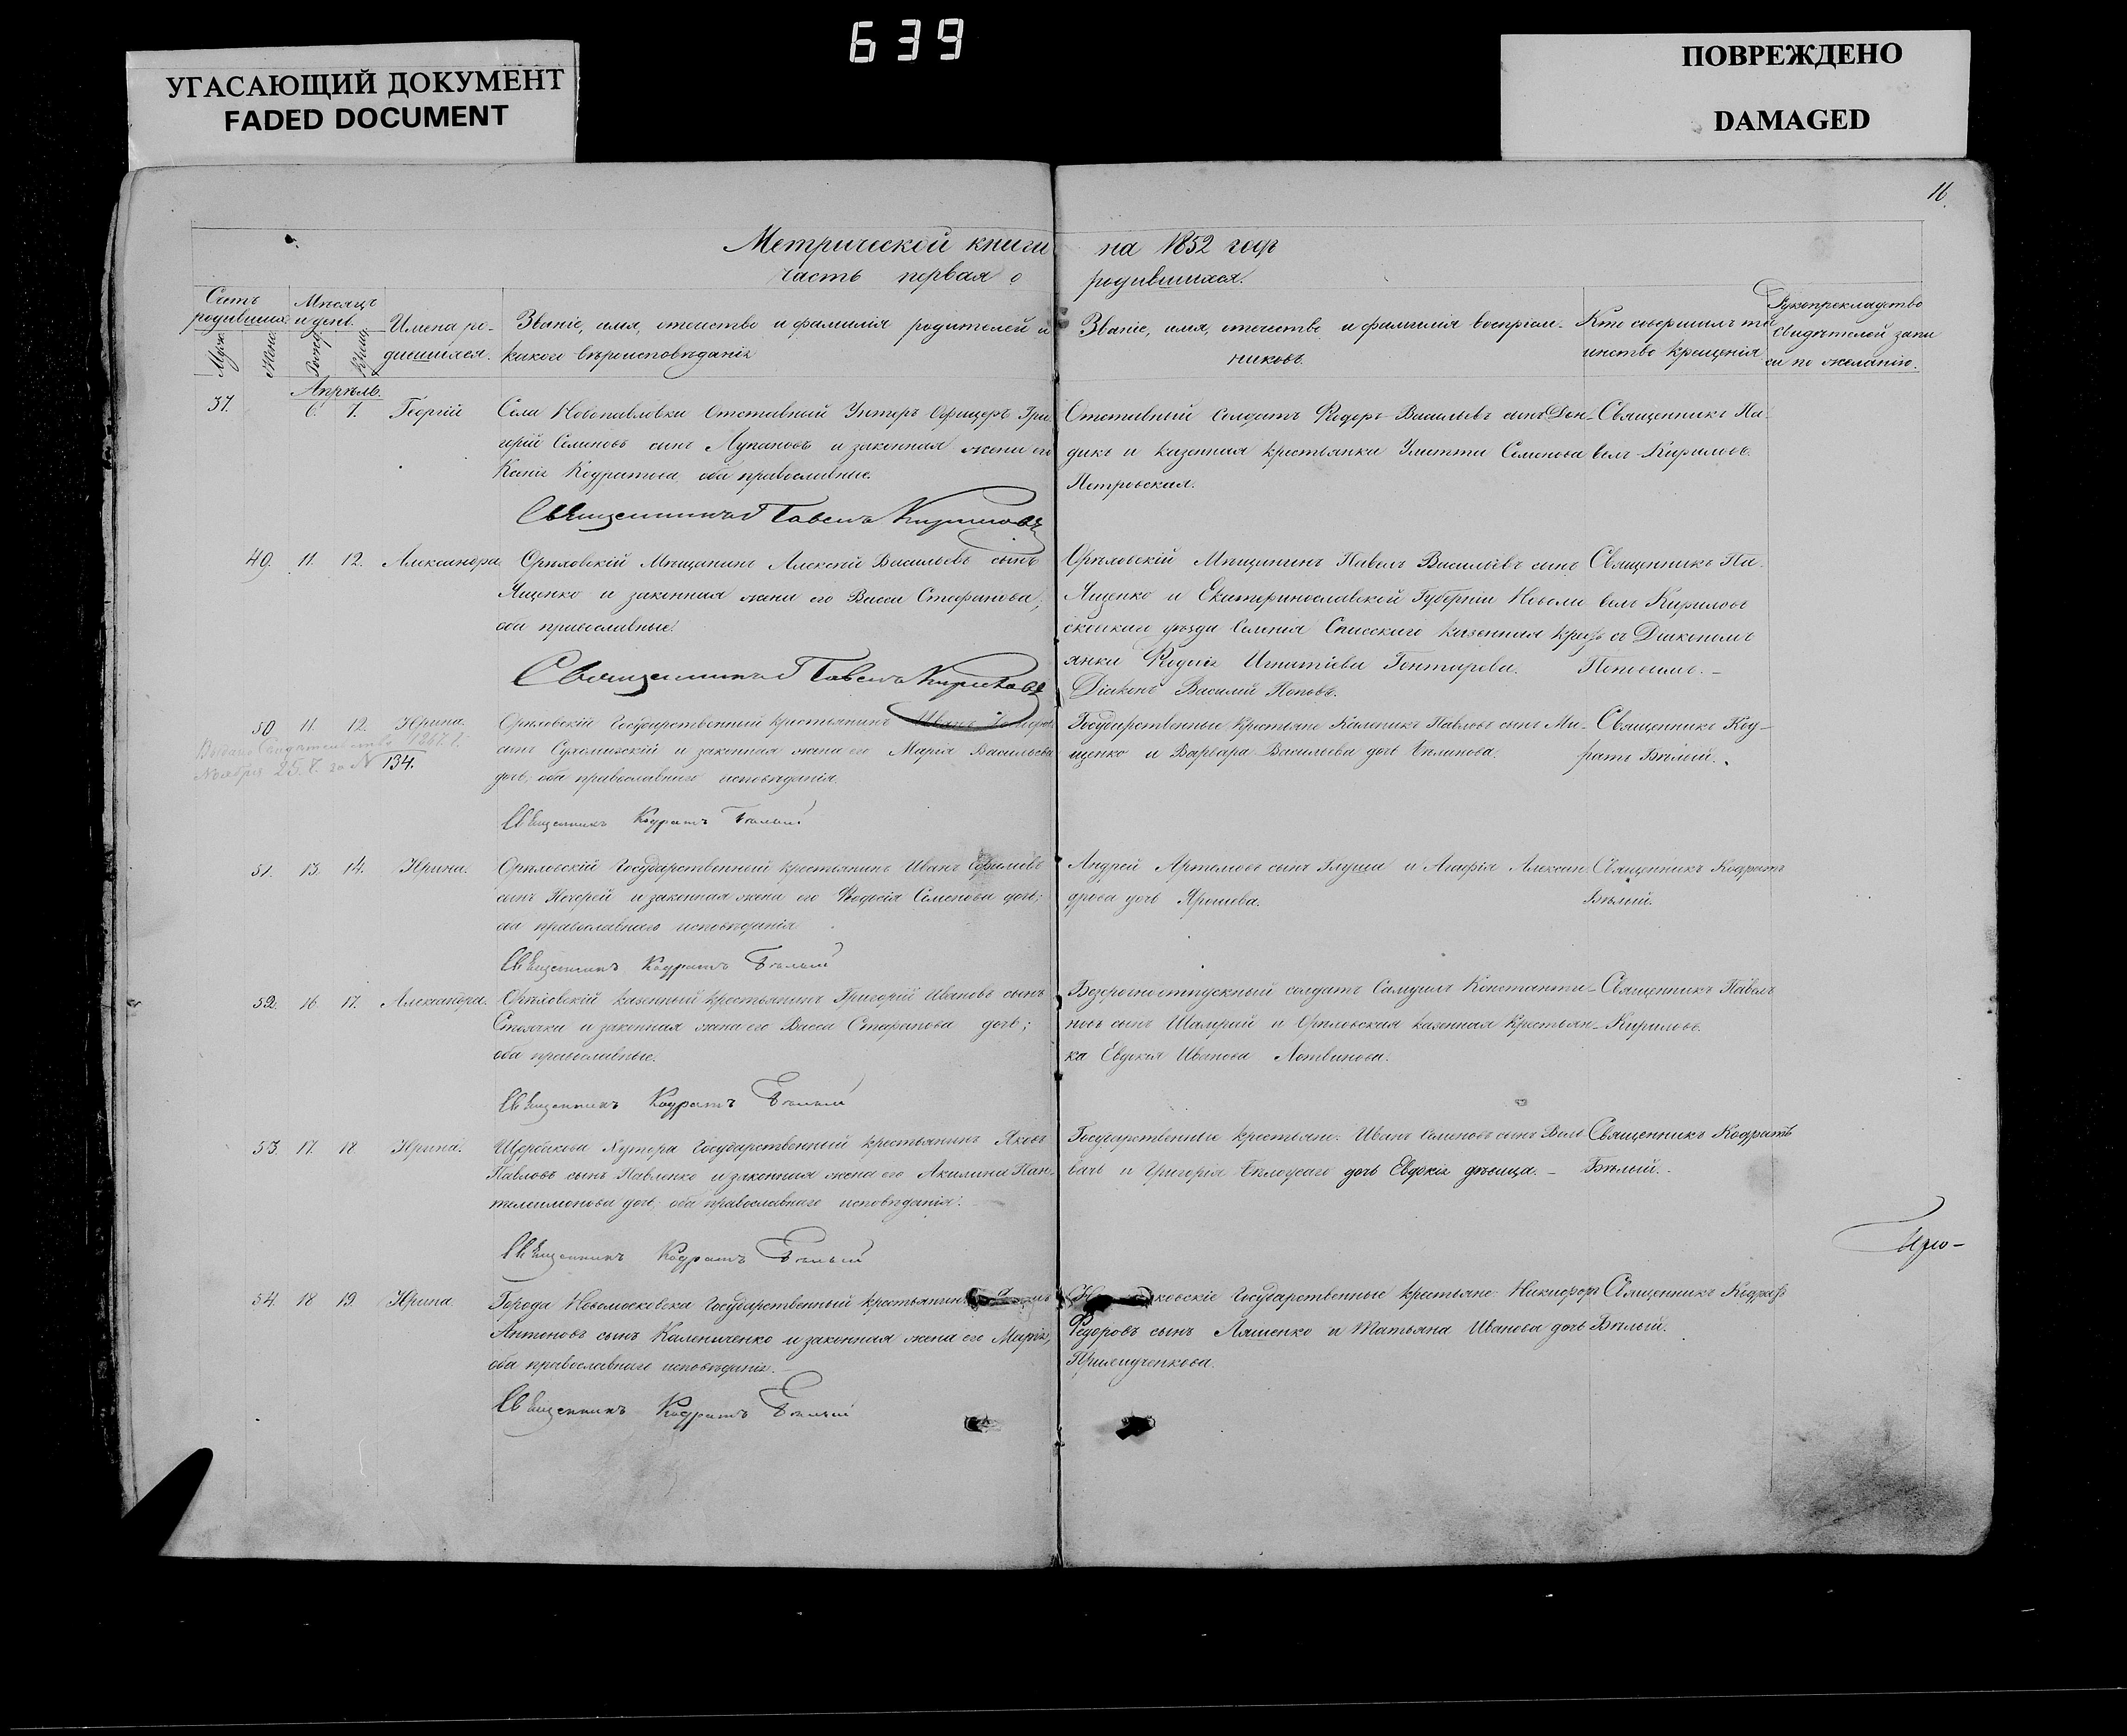 639
УГАСАЮЩИЙ ДОКУМЕНТ
FADED DOCUMENT
ПОВРЕЖДЕНО
DAMAGED
16.
Метрической книги на 1852 годъ
часть первая о родившихся.
Счетъ родивших.
Мѣсяцъ и день.
Муж.
Жен.
Рожд.
Крещ.
Имена родившихся.
Званіе, имя, отчество и фамилія родителей и
какого вѣроисповѣданія
Званіе, имя, отчество и фамилія воспріем-
никовъ.
Кто совершалъ та
инство крещенія
Рукоприкладство
свидѣтелей запи
си по желанію.
Апрѣль.
37. 6. 7. Георгій
Села Новопавловки Отставный Унтеръ Офицеръ Гри
горій Семеновъ сынъ Лупановъ и законная жена его
Ксенія Кодратова оба православные.
Священникъ Павелъ Кириловъ
Отставный Солдатъ Федоръ Васильевъ сынъ
дикъ и казенная крестьянка Улитта Семенова
Петровская.
Священникъ Па-
велъ Кириловъ.
49. 11. 12. Александра.
Орѣловскій Мѣщанинъ Алексѣй Васильевъ сынъ
Ященко и законная жена его Васса Стефанова,
оба православные.
Священникъ Павелъ Кириловъ
Орѣловскій Мѣщанинъ Павелъ Васильевъ сынъ
Ященко и Екатеринославской Губерніи Новомо
сковскаго уѣзда Селенія Спасскаго казенная крест
янка Федосія Игнатіева Гонтарева.
Діаконъ Василій Поповъ.
Священникъ Па-
велъ Кириловъ
съ Діакономъ
Поповымъ. -
50 11. 12. Ирина.
Выдано Свидѣтельство 1867. г.
Ноября 25. г. за № 134.
Орѣловскій Государственный крестьянинъ Иванъ
сынъ Сухомлинскій и законная жена его Марія Васильева
дочь, оба православнаго исповѣданія.
Священникъ Кодратъ Бѣлый
Государственные Крестьяне Калиникъ Павловъ сынъ Ми-
щенко и Варвара Васильева дочь
Священникъ Код-
ратъ Бѣлый.
51. 13. 14. Ирина.
Орѣловскій Государственный крестьянинъ Иванъ Ефимовъ
сынъ и законная жена его Феодосія Семенова дочь;
оба православнаго исповѣданія
Священникъ Кодратъ Бѣлый
Андрей Артемовъ сынъ Глуша и Агафія Алексан
дрова дочь Ярошева.
Священникъ Кодратъ
Бѣлый.
52. 16. 17. Александра.
Орѣловскій казенный крестьянинъ Григорій Ивановъ сынъ
и законная жена его Васса Стефанова дочь;
оба православные.
Священникъ Кодратъ Бѣлый
Безсрочноотпускный солдатъ Самуилъ Константи-
новъ сынъ и Орѣловская казенная Крестьян-
ка Евдокія Иванова Литвинова.
Священникъ Павелъ
Кириловъ.
53. 17. 18. Ирина.
Щербакова Хутора Государственный крестьянинъ Яковъ
Павловъ сынъ Павленко и законная жена его Акилина Пан-
телеимонова дочь, оба православнаго исповѣданія.
Священникъ Кодратъ Бѣлый
Государственные крестьяне: Иванъ Семеновъ сынъ
и Григорія дочь Евдокія дѣвица. -
Священникъ Кодратъ
Бѣлый.
54. 18 19. Ирина.
Города Новомосковска Государственный крестьянинъ
Антоновъ сынъ Калениченко и законная жена его Марія,
оба православнаго исповѣданія.
Священникъ Кодратъ Бѣлый
ковскіе Государственные крестьяне Никифоръ
Федоровъ сынъ Ляшенко и Татьяна Иванова дочь
Священникъ Кодратъ
Бѣлый.